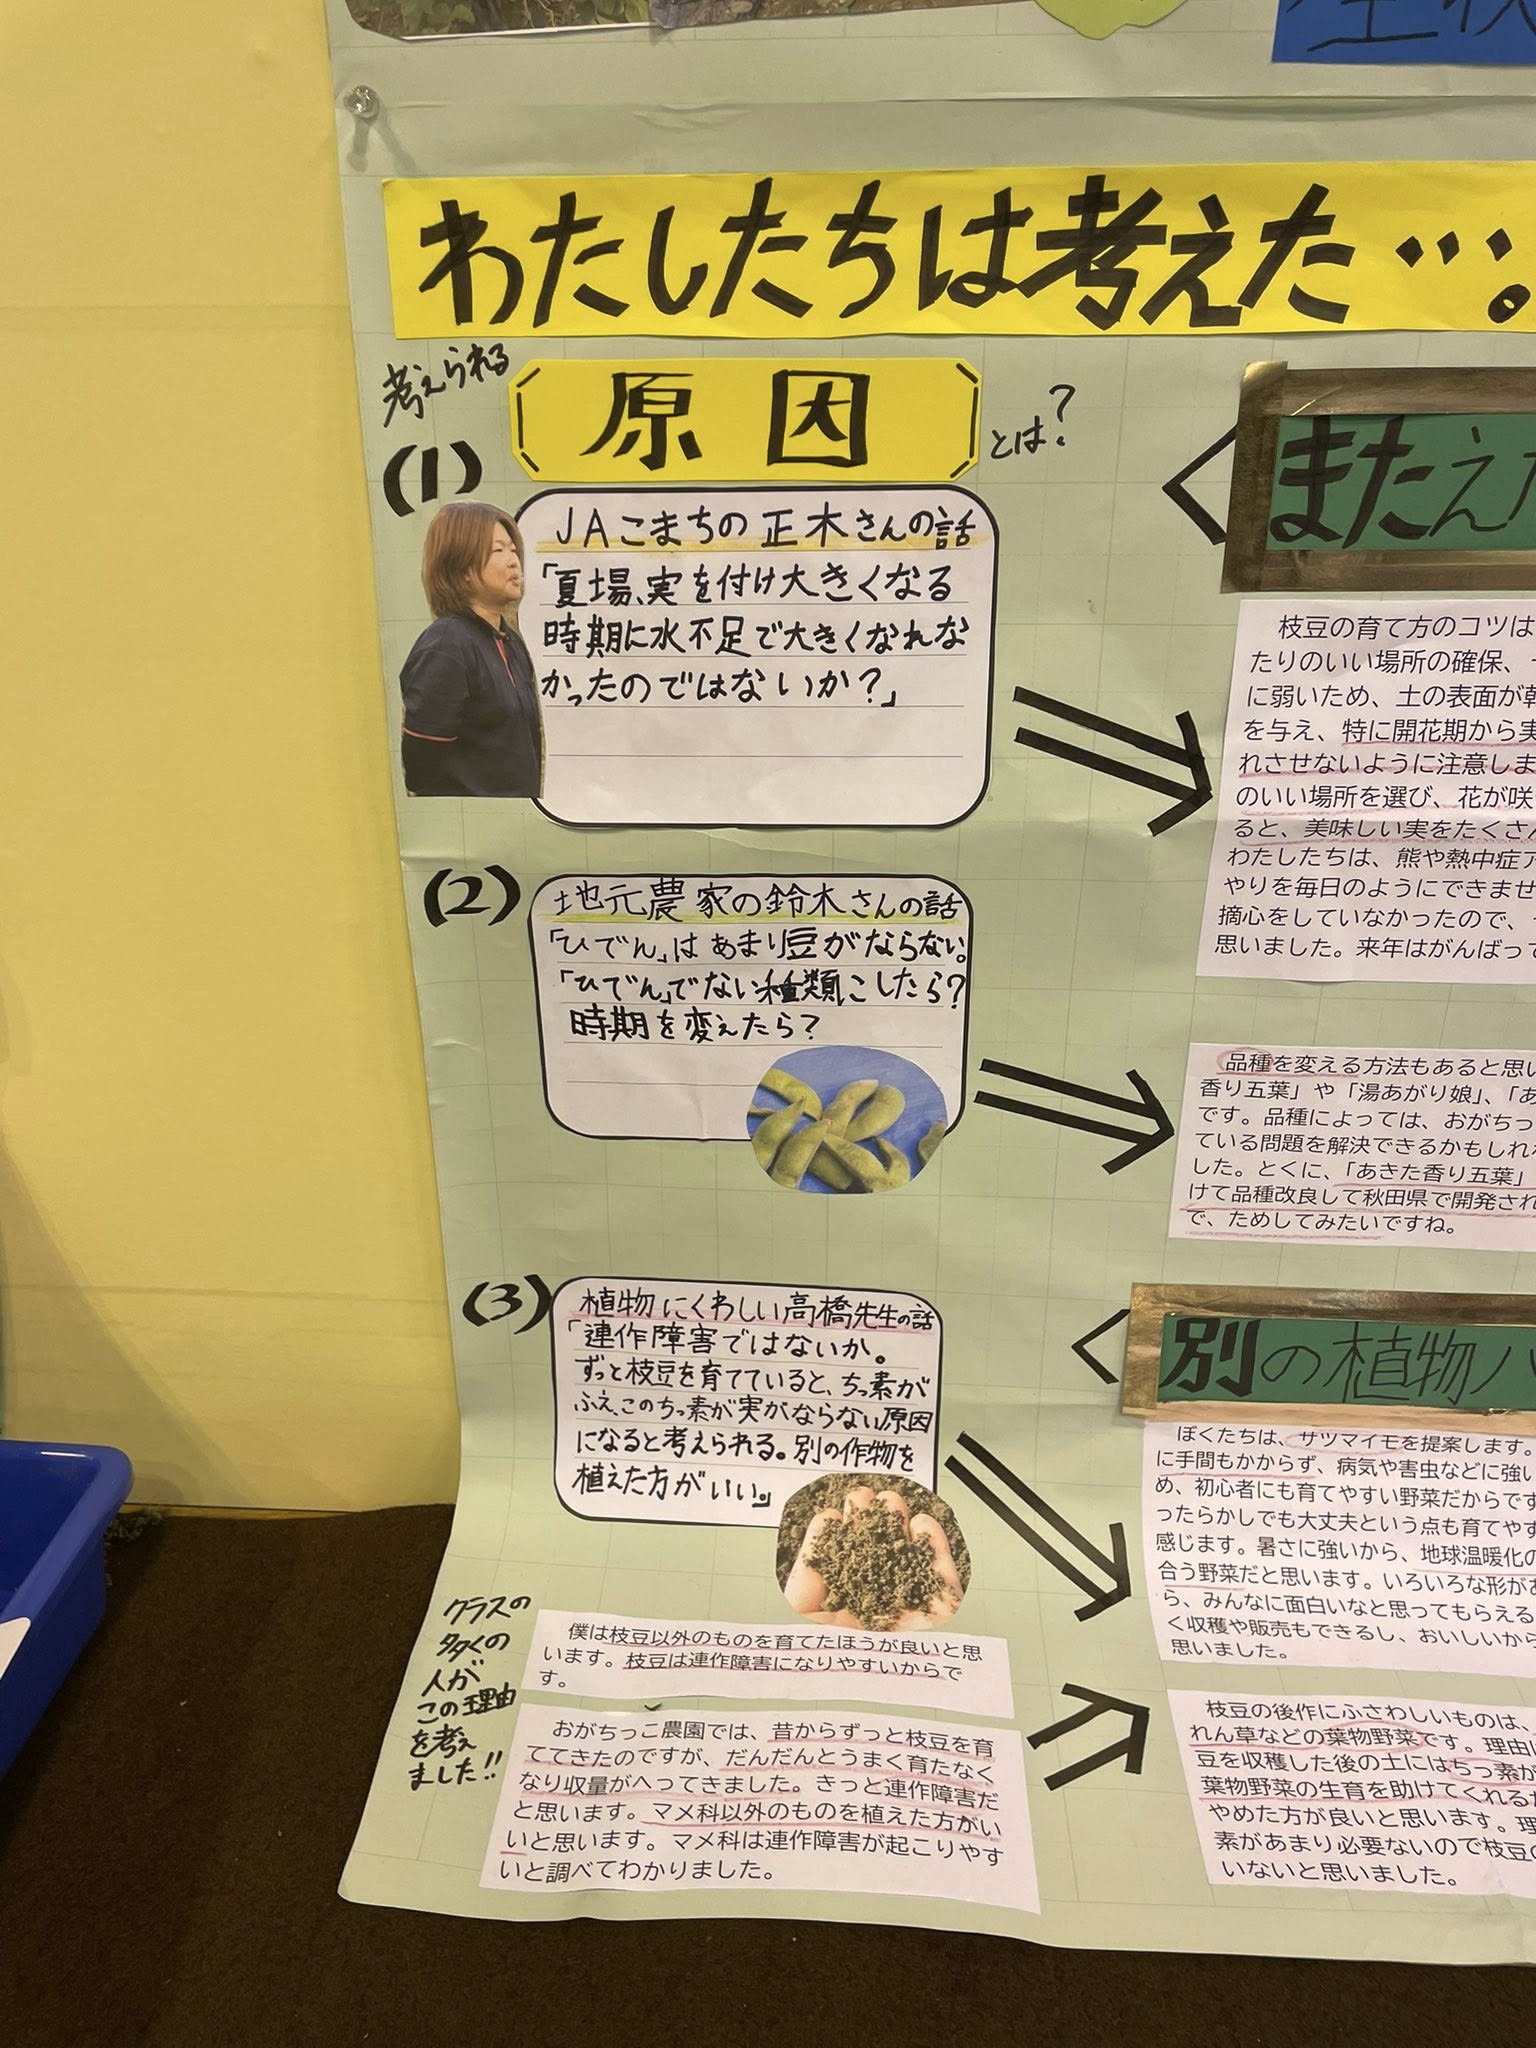 わたしたちは考えた…。
考えられる
原因
とは?
(1)
JAこまちの正木さんの話
「夏場、実を付け大きくなる
時期に水不足で大きくなれな
かったのではないか?」
(2)
地元農家の鈴木さんの話
「ひでん」はあまり豆がならない。
「ひでん」でない種類にしたら?
時期を変えたら?
(3)
植物にくわしい高橋先生の話
「連作障害ではないか。
ずっと枝豆を育てていると、ちっ素が
ふえ、このちっ素が実がならない原因
になると考えられる。別の作物を
植えた方がいい。」
クラスの
多くの
人が
この理由
を考え
ました!!
僕は枝豆以外のものを育てたほうが良いと思
います。枝豆は連作障害になりやすいからで
す。
おがちっこ農園では、昔からずっと枝豆を育
ててきたのですが、だんだんとうまく育たなく
なり収量がへってきました。きっと連作障害だ
と思います。マメ科以外のものを植えた方がい
いと思います。マメ科は連作障害が起こりやす
いと調べてわかりました。
またえだ
枝豆の育て方のコツは
たりのいい場所の確保、
に弱いため、土の表面が乾
を与え、特に開花期から実
れさせないように注意しま
のいい場所を選び、花が咲
ると、美味しい実をたくさん
わたしたちは、熊や熱中症ア
やりを毎日のようにできませ
摘心をしていなかったので、
思いました。来年はがんばって
品種を変える方法もあると思い
香り五葉」や「湯あがり娘」、「あ
です。品種によっては、おがちっ
ている問題を解決できるかもしれ
した。とくに、「あきた香り五葉」
けて品種改良して秋田県で開発され
で、ためしてみたいですね。
別の植物
ぼくたちは、サツマイモを提案します。
に手間もかからず、病気や害虫などに強い
め、初心者にも育てやすい野菜だからです
ったらかしでも大丈夫という点も育てやす
感じます。暑さに強いから、地球温暖化の
合う野菜だと思います。いろいろな形があ
ら、みんなに面白いなと思ってもらえる
く収穫や販売もできるし、おいしいから
思いました。
枝豆の後作にふさわしいものは、
れん草などの葉物野菜です。理由は
豆を収穫した後の土にはちっ素が
葉物野菜の生育を助けてくれるか
やめた方が良いと思います。理
素があまり必要ないので枝豆の
いないと思いました。